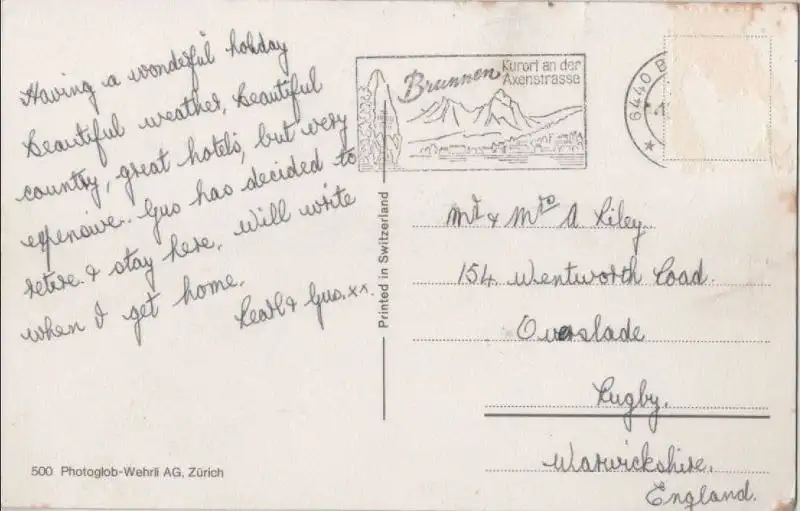 Having a wonderful holiday
Beautiful weather, Beautiful
country, great hotels, but very
expensive. Gus has decided to
retire & stay here. Will write
when I get home.
Pearl & Gus. xx.
Brunnen
Kurort an der
Axenstrasse
6440 B
Printed in Switzerland
Mr & Mrs A Riley
154 Wentworth Road.
Overslade
Rugby.
Warwickshire.
England.
500 Photoglob-Wehrli AG, Zürich